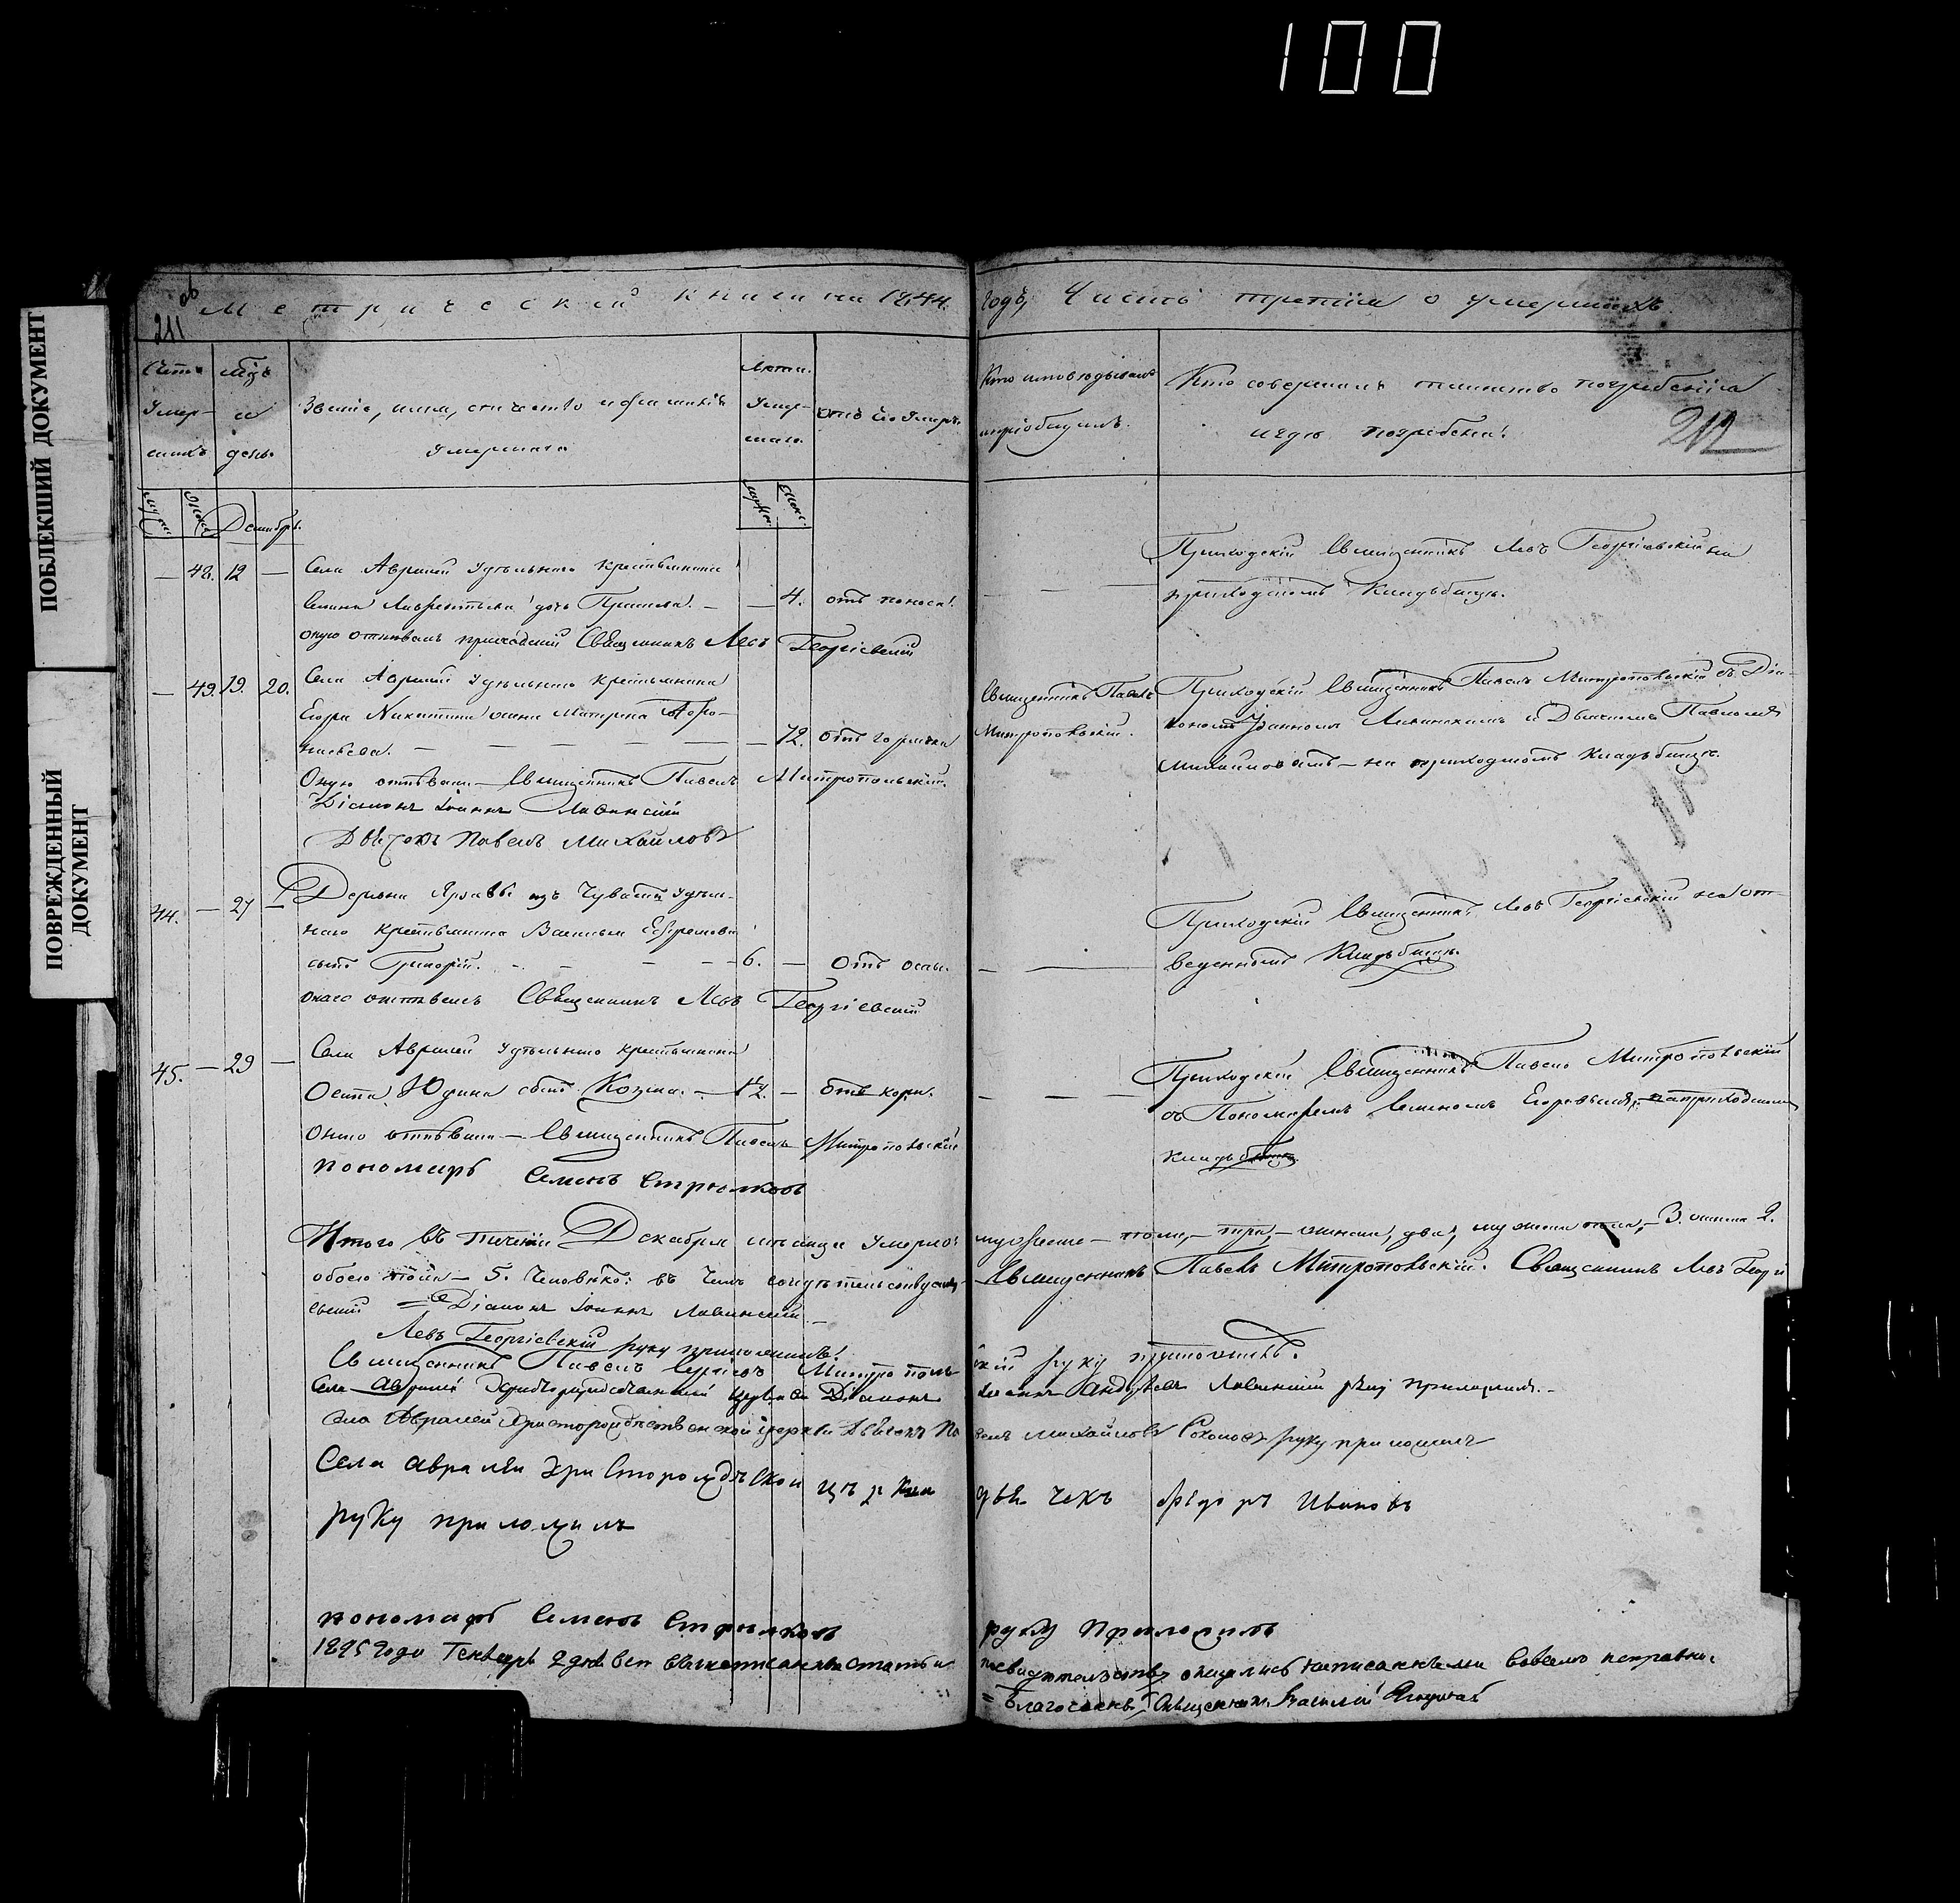 100
ПОБЛЕКШИЙ ДОКУМЕНТ
ПОВРЕЖДЕННЫЙ
ДОКУМЕНТ
об
211
Метрической книги на 1844.
годъ, Часть третїя о умершихъ
212
Счетъ
Умер-
шихъ
мѣць
и
день.
Званіе, имя, отчество и фамилія
умершаго
Лета
Умер-
шаго.
отъ чего умеръ.
Кто исповѣдывалъ
и пріобщилъ.
Кто совершалъ таинство погребенія
и гдѣ погребены.
Декабрь.
— 48. 12 — Села Авралей удѣльнаго крестьянина
Семена Лаврентьева дочь — — 4. отъ поноса.
оную отпѣвалъ приходскій Священникъ Левъ Георгіевскій
Приходскій Священникъ Левъ Георгіевскій на
приходскомъ кладбищѣ.
— 49. 19. 20. Села Авралей удѣльнаго крестьянина
Егора Никитина жена Матрена Афо-
насьева. — — — — — — 72. отъ горячки
Оную отпѣвали — Священникъ Павелъ Митропольскій.
Діаконъ Іоаннъ Лавинскій
Дьячекъ Павелъ Михайловъ
Священникъ Павелъ
Митропольскій.
Приходскій Священникъ Павелъ Митропольскій съ Діа-
кономъ Іоанномъ и Дьячкомъ Павломъ
Михайловымъ — на приходскомъ кладбищѣ.
44. — 27 — Деревни изъ Чувашъ удѣль-
наго крестьянина Василья Ефремова
сынъ Григорій. — — — — 6. — Отъ оспы.
онаго отпѣвалъ Священникъ Левъ Георгіевскій
Приходскій Священникъ Левъ Георгіевскій на от
веденномъ кладбищѣ.
45. — 29 — Села Авралей удѣльнаго крестьянина
Осипа Юдина сынъ Козма. — — отъ кори.
Онаго отпѣвали — Священникъ Павелъ Митропольскій
пономарь Семенъ Стрелковъ
Приходскій Священникъ Павелъ Митропольскій
съ Пономаремъ Семеномъ Егоровымъ, на приходскомъ
кладбищѣ.
Итого въ теченіи Декабря мѣсяца умерло мужеска — пола, — три, — женска, два, мужска пола, — 3. женска 2.
обоего пола — 5. Человѣкъ: въ чемъ свидѣтельствуемъ — Священникъ Павелъ Митропольскій. Священникъ Левъ Георгі
евскій = Діаконъ Іоаннъ Лавинскій. —
Левъ Георгіевскій руку приложилъ.
Священникъ Павелъ Сергіевъ Митрополь скій руку приложилъ.
Села Авралей Христорождественской церкви Діаконъ Іоаннъ Андреевъ Лавинскій руку приложилъ. —
Села Авралей Христорождественской церкви дьячекъ Па велъ Михайловъ Соколовъ руку приложилъ
Села Авралѣи Христорождевской церкви дьячекъ Ѳедоръ Ивановъ
руку приложилъ
пономарь Семенъ Стрелковъ руку приложилъ
1845 года Генваря 2 дня
= Благочинный Священникъ Василій